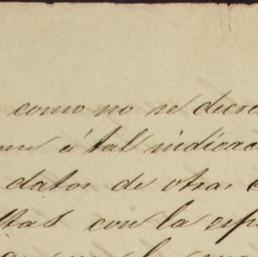 como no se decre
á tal indicac
datos de otras
con la esp